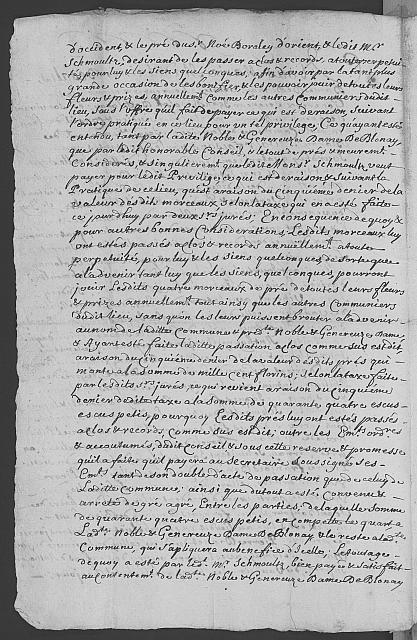 d'occident, & le pré du Sr. Noé Boraley d'orient, & ledis Mr.
Schmoultz, desirant de les passer a clos & records, a toute perpetui
té, pour luy & les siens quelconques, afin d'avoir par la tant plus
grande occasion de les bonifier & les pouvoir jouir de toutes leurs
fleurs & prizes annuellemt. Comme les autres Communiers dudit
lieu, sous l'offre qu'il fait de payer ce qui est de raison, suivant
l'ordre pratiqué en ce lieu, pour un tel privilege, Ce qu'ayant esté
entendu, tant par ladite Noble & Genereuse Dame De Blonay
que par ledit honorable Conseil, & le tout de prés & meurement
Consideré, & singulierement que ledit Monsr. Schmoultz veut
payer pour ledit Privilege ce qui est de raison & suivant la
Pratique de ce lieu, qui est a raison du cinquiéme denier de la
valeur desdits morceaux, selon la taxe qui en a esté faite
ce jourd'huy par deux Srs. jurés, En consequence de quoy &
pour autres bonnes Considerations, Lesdits morceaux luy
ont estés passés a clos & records annuellemt. a toute
perpetuité, pour luy & les siens quelconques, de sorte que
a l'advenir tant luy que les siens, quelconques, pourront
jouir lesdits quatre morceaux de pré de toutes leurs fleurs
& prizes annuellemt. tout ainsy que les autres Communiers
dudit lieu, sans qu'on les leurs puissent brouter a l'advenir
au nom de Laditte Commune & predte. Noble & Genereuse Dame
& Ayant esté faite laditte passation a clos comme sus est dit,
a raison du Cinquiéme denier de la valeur desdits prés qui
monte a la somme de mille cent florins, selon la taxe faite
par lesdits Srs. jurés, ce qui revient a raison du cinquiéme
denier de ditte taxe a la somme de quarante quatre escus
escus petis, pourquoy Lesdits prés luy ont estés passés
a clos & records, comme sus est dit, outre les Emts. ordres
& accoutumés, dudit Conseil & sous cette reserve & promesse
qu'il a faite qu'il payera au Secretaire soussigné ses
Emts. tant de son double d'acte de passation que de celuy de
Laditte Commune, ainsi que du tout a esté convenu &
arresté de gré a gré Entre les parties, de laquelle somme
de quarante quatre escus petis, en compette le quart a
Ladte. Noble & Genereuse Dame De Blonay & le reste a ladte.
Commune, qui s'apliquera au benefice d'Icelle, Le tout age
de quoy a esté par ledt. Mr. Schmoultz, bien payé & satisfait
au contentemt. de ladte. Noble & Genereuse Dame De Blonay